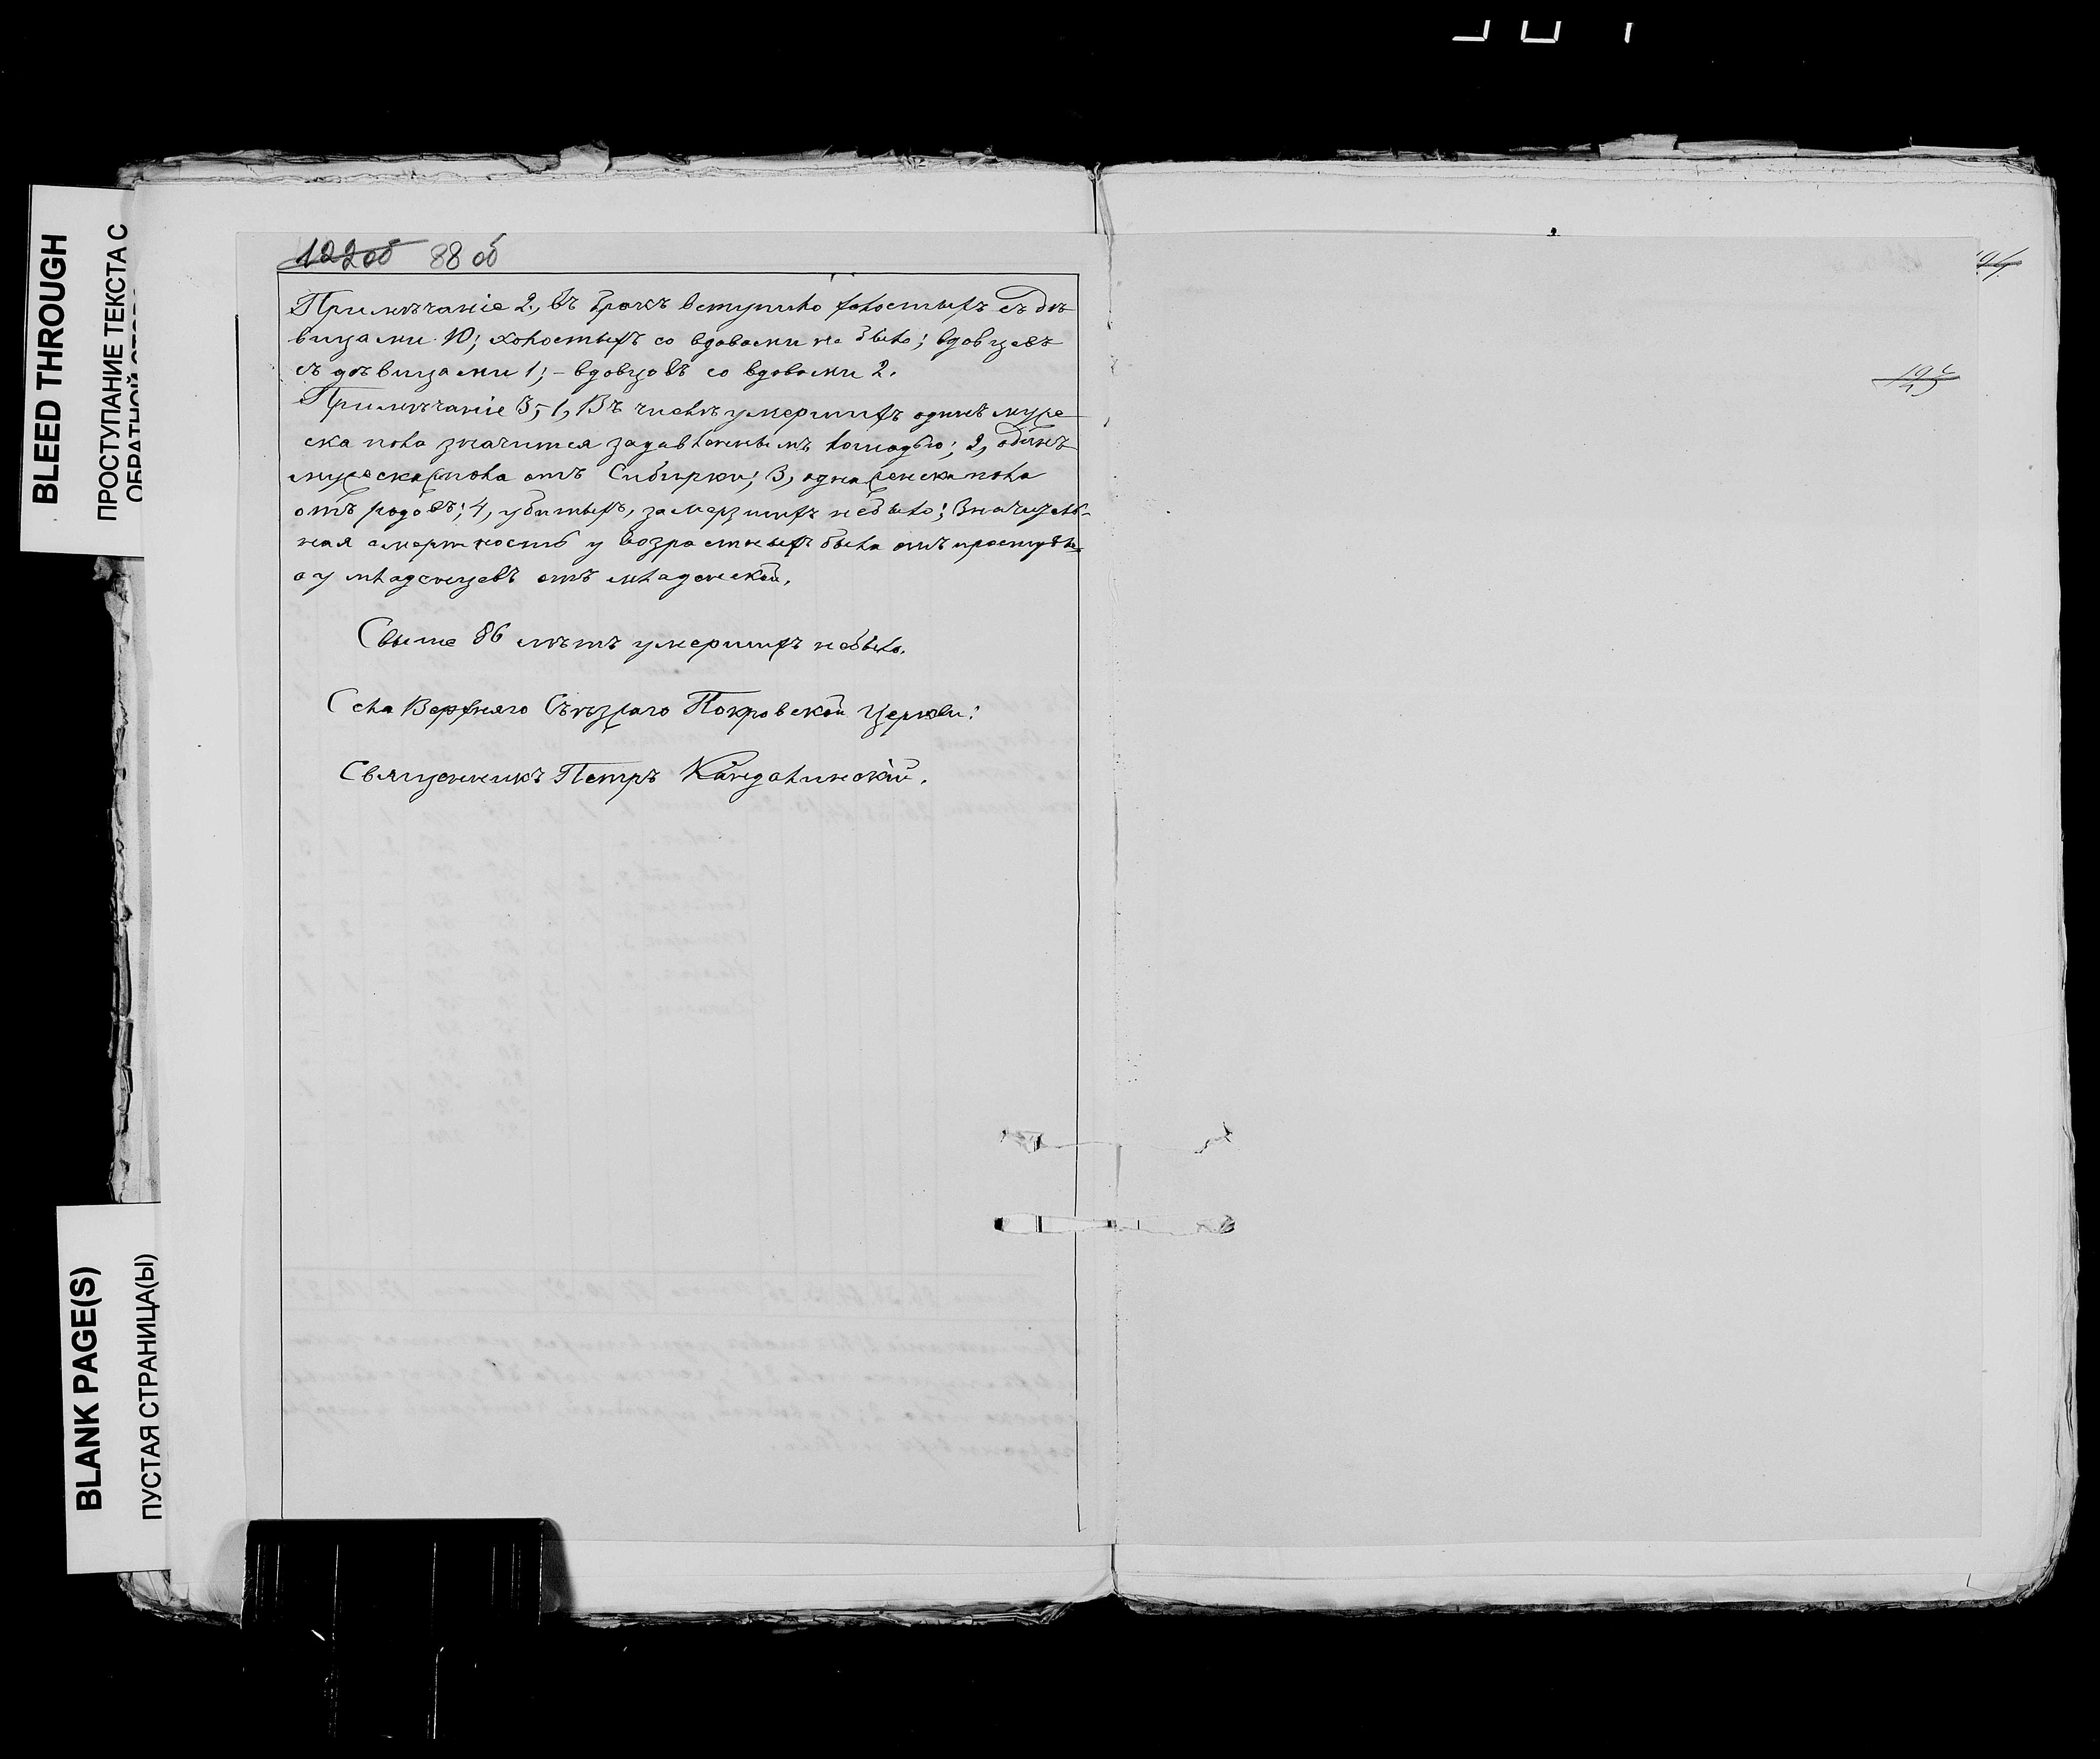 122 об 88 об
Примѣчаніе 2., въ бракъ вступило холостыхъ съ дѣ-
вицами 10; холостыхъ со вдовами не было; вдовцевъ
съ дѣвицами 1; - вдовцовъ со вдовами 2.
Примѣчаніе 3, 1, Въ числѣ умершихъ одинъ муже
ска пола значится задавленнымъ лошадью; 2, одинъ
мужеска пола отъ Сибирки; 3, одна женска пола
отъ родовъ; 4, убитыхъ, замерзшихъ небыло; Значитель-
ная смертность у возрастныхъ была отъ простуды
а у младенцевъ отъ младенской.
Свыше 86 лѣтъ умершихъ небыло.
Села Верхняго Съѣзжаго Покровской Церкви:
Священникъ Петръ Кандалинскій.
BLEED THROUGH
ПРОСТУПАНИЕ ТЕКСТА С
ОБРАТНОЙ
BLANK PAGE(S)
ПУСТАЯ СТРАНИЦА(Ы)